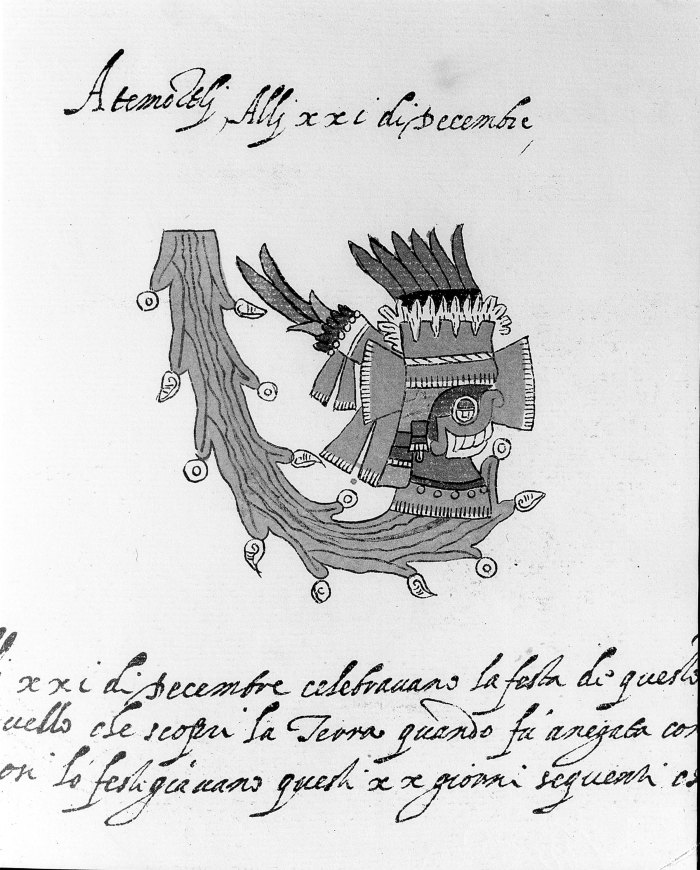 Atemoztlj, Allj xxi di Decembre,
xxi di Decembre celebravano la festa di questo
quello che scoprì la Terra quando fù anegata con
lo festigiavano questi xx giorni seguenti